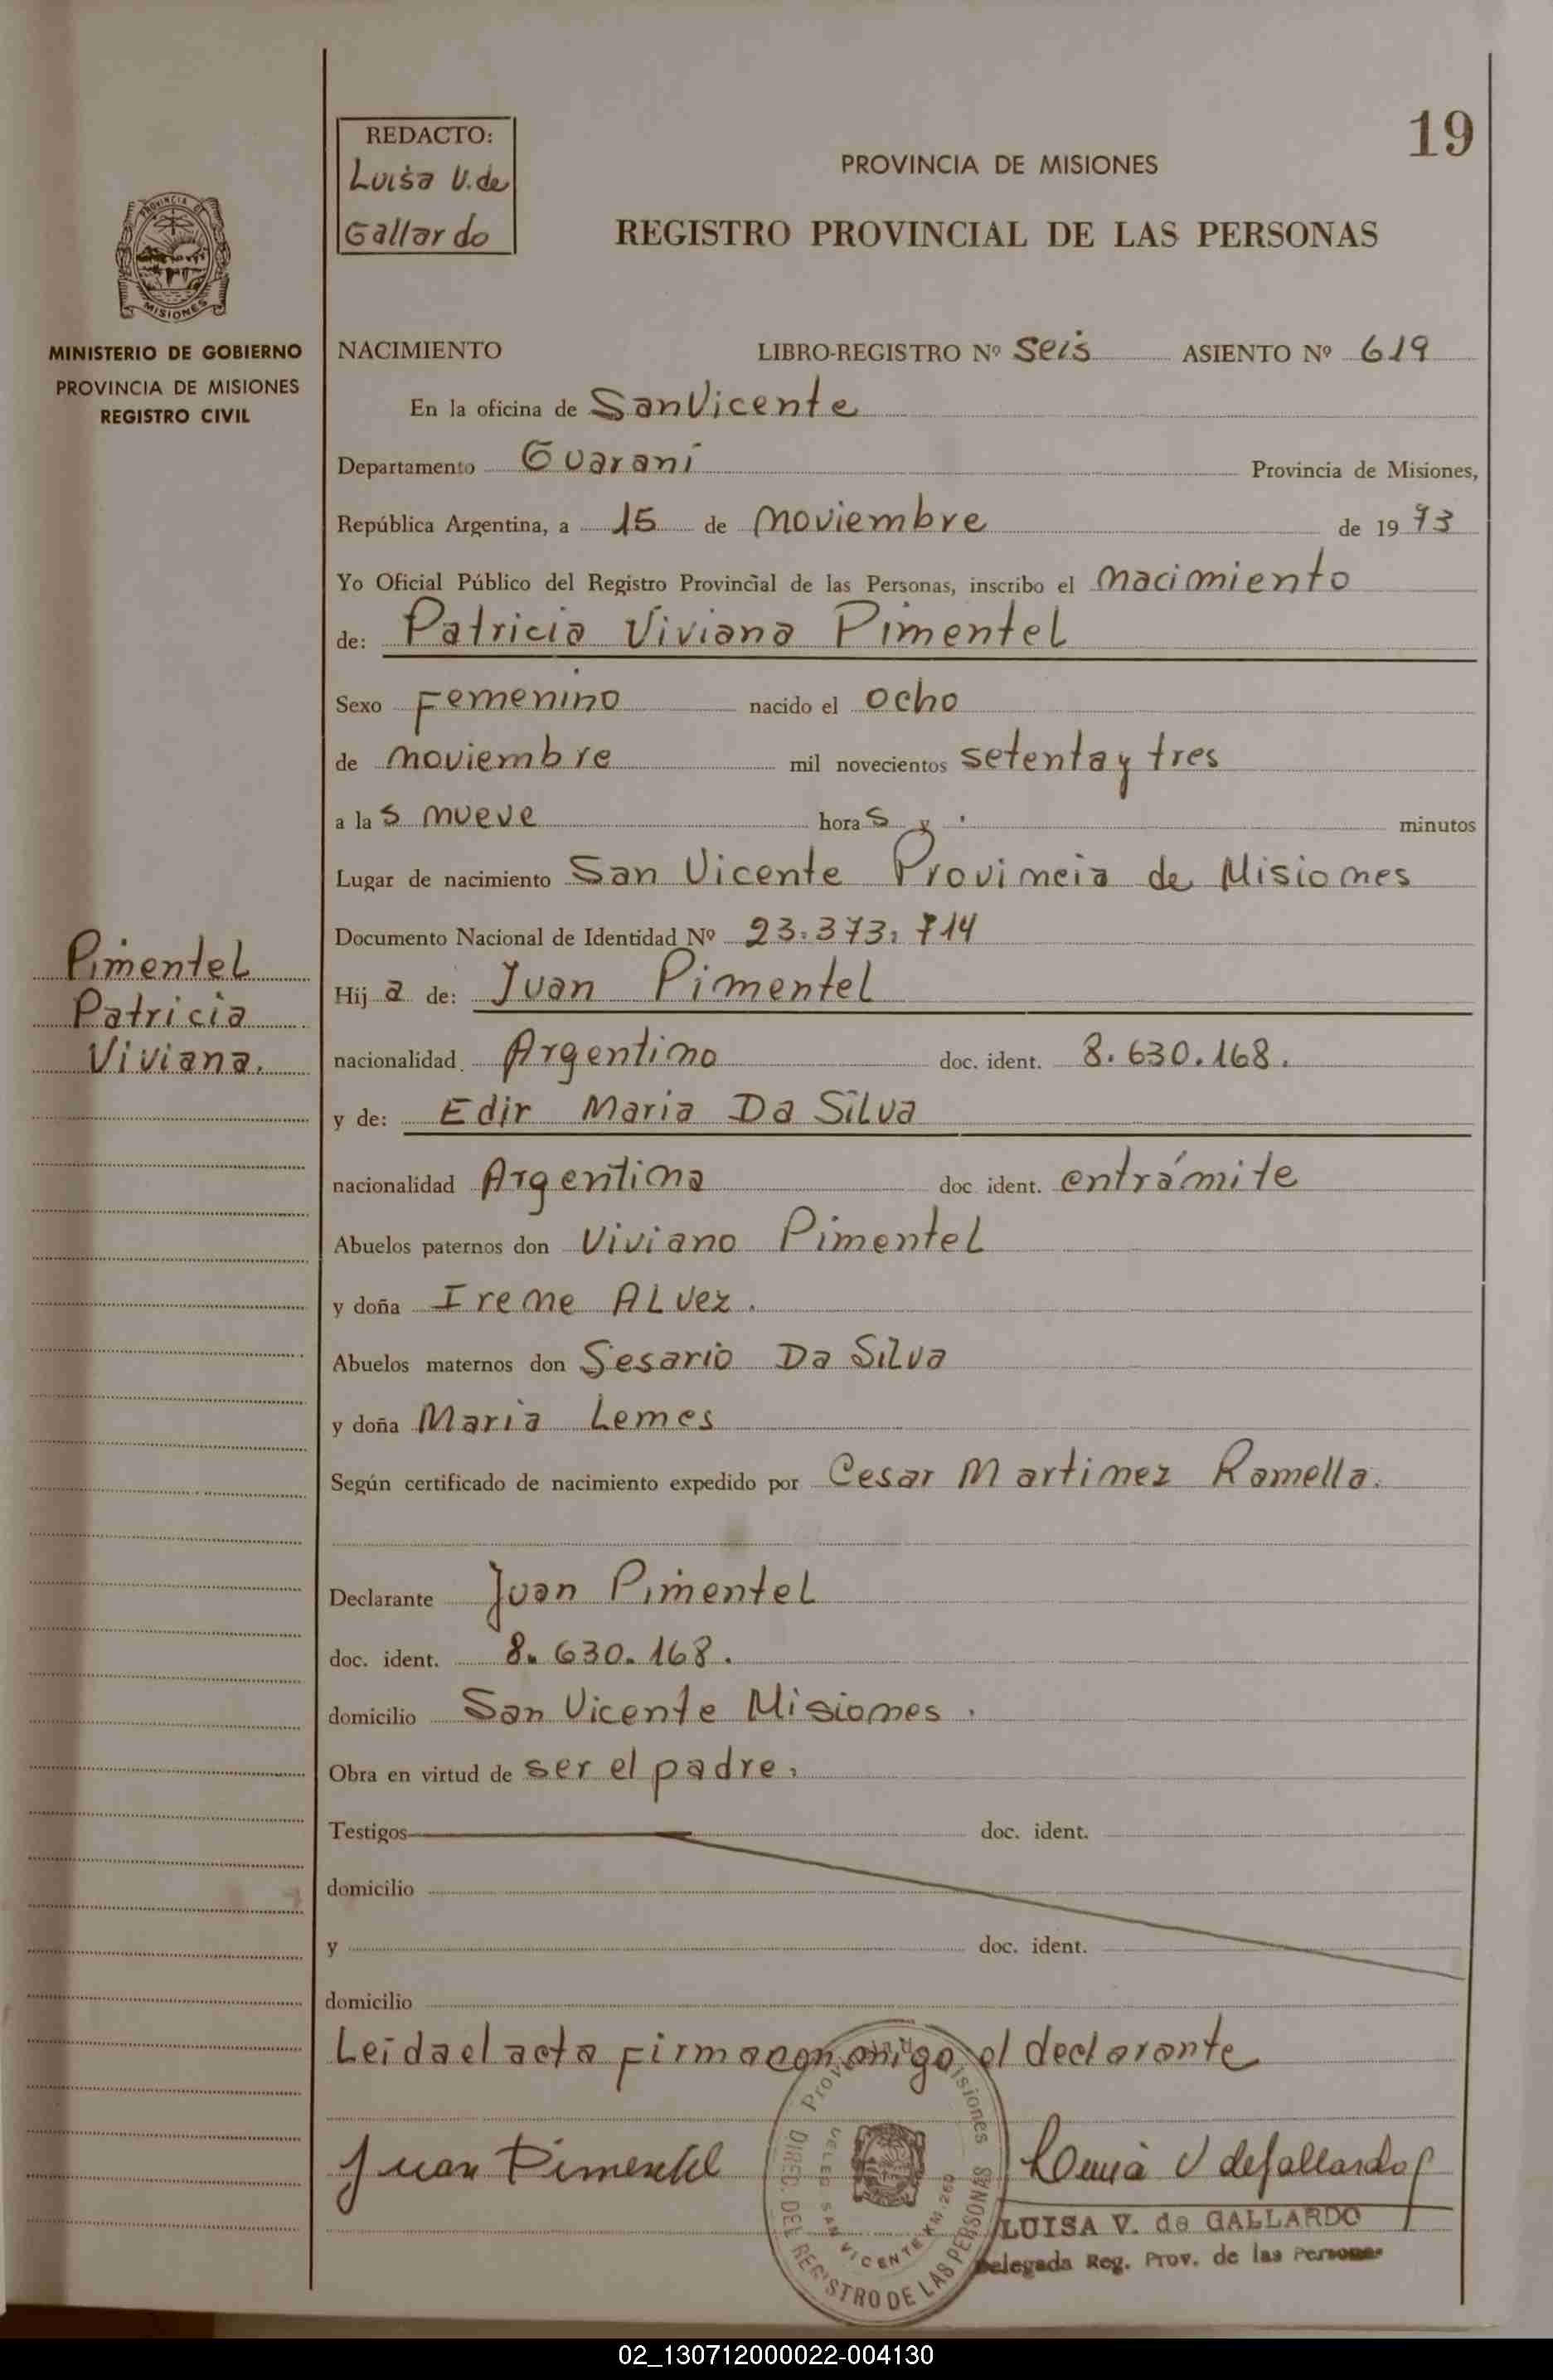 19
REDACTO:
Luisa V. de
Gallardo
PROVINCIA DE MISIONES
REGISTRO PROVINCIAL DE LAS PERSONAS
PROVINCIA DE
MISIONES
MINISTERIO DE GOBIERNO
PROVINCIA DE MISIONES
REGISTRO CIVIL
NACIMIENTO LIBRO-REGISTRO Nº Seis ASIENTO Nº 619
En la oficina de San Vicente
Departamento Guaraní Provincia de Misiones,
República Argentina, a 15 de Noviembre de 19 73
Yo Oficial Público del Registro Provincial de las Personas, inscribo el nacimiento
de: Patricia Viviana Pimentel
Sexo Femenino nacido el ocho
de noviembre mil novecientos setenta y tres
a la s nueve hora s y . minutos
Lugar de nacimiento San Vicente Provincia de Misiones
Documento Nacional de Identidad Nº 23.373.714
Pimentel
Patricia
Viviana.
Hij a de: Juan Pimentel
nacionalidad Argentino doc. ident. 8.630.168.
y de: Edir Maria Da Silva
nacionalidad Argentina doc. ident. en trámite
Abuelos paternos don Viviano Pimentel
y doña Irene ALvez.
Abuelos maternos don Sesario Da Silva
y doña Maria Lemes
Según certificado de nacimiento expedido por Cesar Martinez Ramella.
Declarante Juan Pimentel
doc. ident. 8.630.168.
domicilio San Vicente Misiones.
Obra en virtud de ser el padre.
Testigos doc. ident.
domicilio
y doc. ident.
domicilio
Leida el acta firma conmigo el declarante
Juan Pimentel
Luisa V de Gallardo
LUISA V. de GALLARDO
Delegada Reg. Prov. de las Personas
DIREC. DEL REGISTRO DE LAS PERSONAS
DELEG. SAN VICENTE KM. 260
02_130712000022-004130